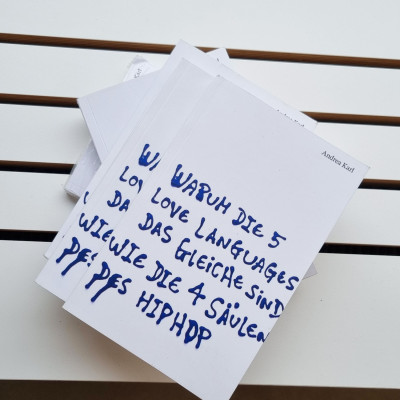 Andrea Karl
WARUM DIE 5
LOVE LANGUAGES
DAS GLEICHE SIND
WIE DIE 4 SÄULEN
DES HIPHOP